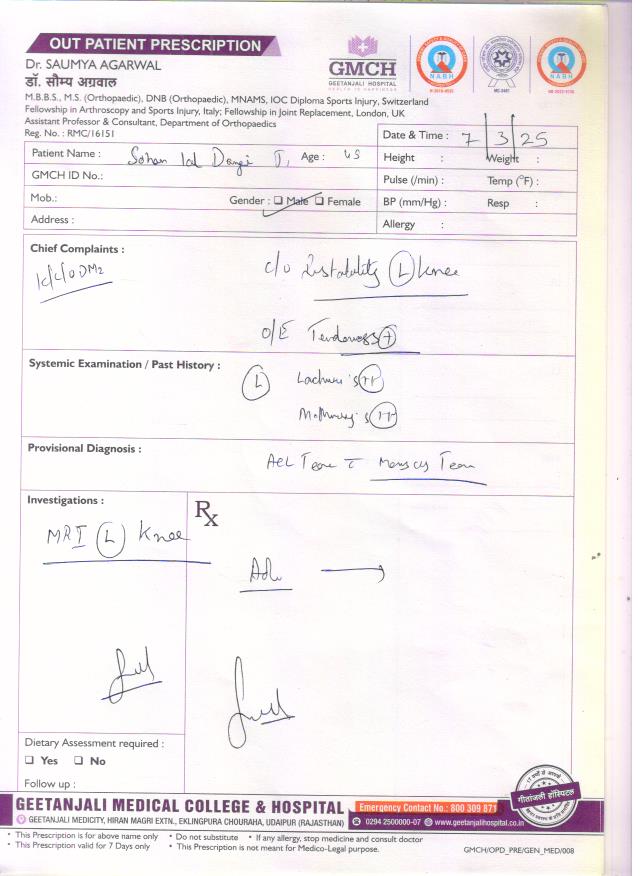 OUT PATIENT PRESCRIPTION
Dr. SAUMYA AGARWAL
डॉ. सौम्य अग्रवाल
M.B.B.S., M.S. (Orthopaedic), DNB (Orthopaedic), MNAMS, IOC Diploma Sports Injury, Switzerland
Fellowship in Arthroscopy and Sports Injury, Italy; Fellowship in Joint Replacement, London, UK
Assistant Professor & Consultant, Department of Orthopaedics
Reg. No. : RMC/16151
GMCH
GEETANJALI HOSPITAL
HEALTH IS HAPPINESS
NABH
NABH
Date & Time : 7/3/25
Patient Name : Sohan lal Dangi Age : 45
Height : Weight :
GMCH ID No.:
Pulse (/min) : Temp (°F) :
Mob.: Gender : Male Female
BP (mm/Hg) : Resp :
Address :
Allergy :
Chief Complaints :
K/C/O DM2
c/o Instability (L) Knee
O/E Tenderness (+)
Systemic Examination / Past History :
(L) Lachman's (++)
McMurray's (++)
Provisional Diagnosis :
ACL Tear c Meniscus Tear
Investigations :
Rx
MRI (L) Knee
Adv →
Dietary Assessment required :
Yes No
Follow up :
गीतांजली हॉस्पिटल
GEETANJALI MEDICAL COLLEGE & HOSPITAL
Emergency Contact No.: 800 309 871
GEETANJALI MEDICITY, HIRAN MAGRI EXTN., EKLINGPURA CHOURAHA, UDAIPUR (RAJASTHAN)
0294 2500000-07 www.geetanjalihospital.co.in
• This Prescription is for above name only • Do not substitute • If any allergy, stop medicine and consult doctor
• This Prescription valid for 7 Days only • This Prescription is not meant for Medico-Legal purpose.
GMCH/OPD_PRE/GEN_MED/008